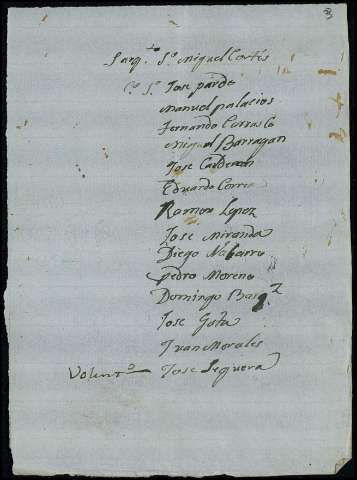 Sarg.to S.n Miguel Cortés
C.o S.n Jose pardo
Manuel palacios
Fernando Carrasco
Miguel Barragan
Jose Calderon
Eduardo Correa
Ramon Lopez
Jose Miranda
Diego Nabarro
pedro Moreno
Domingo Basq.z
Jose
Juan Morales
Volunt.o Jose Sequera